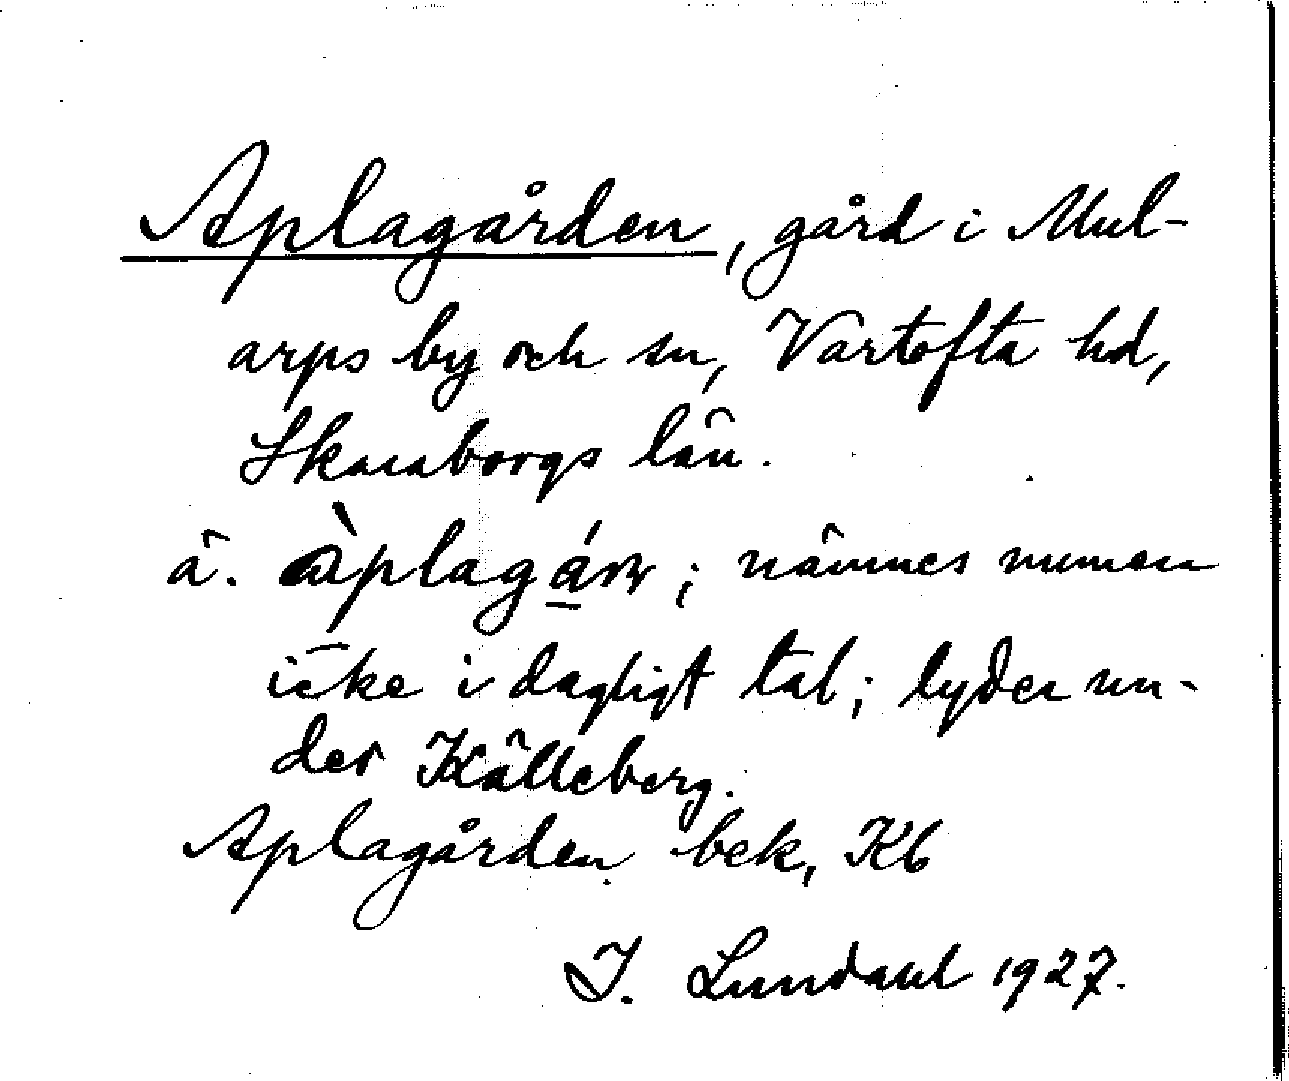 Aplagården, gård i Mul-
arps by och sn, Vartofta hd,
Skaraborgs län.
ä. àplagá̱rn; nämnes numera
icke i dagligt tal; lyder un-
der Källeberg.
Aplagården bek, Kb
I. Lundahl 1927.